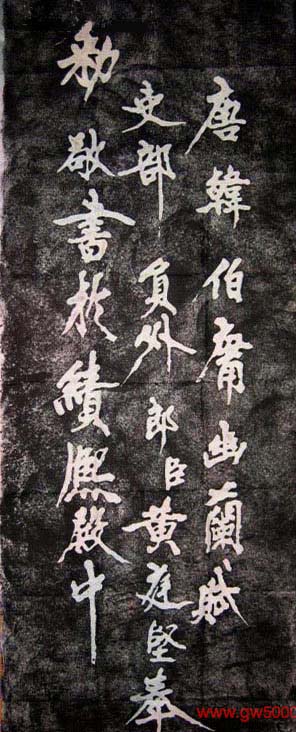 唐韓伯庸幽蘭賦
吏部員外郎臣黃庭堅奉
勑敬書於績熙殿中
www.gw5000